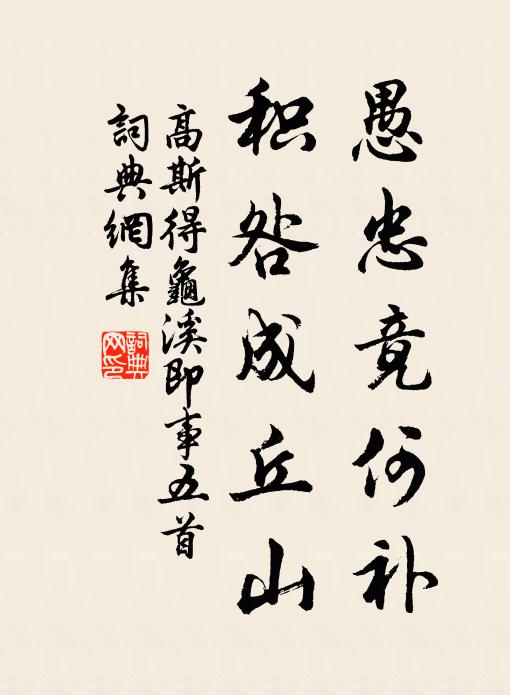 愚忠竟何补
积咎成丘山
高斯得龜溪即事五首
詞典網集
詞典网印